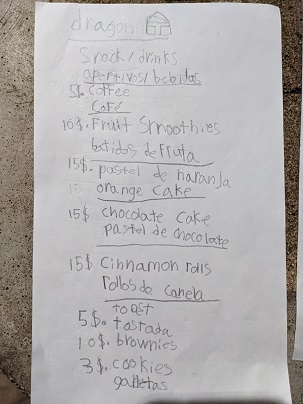 dragon
Snack/drinks
apertivos/bebidas
5$. coffee
Café
10$. Fruit Smoothies
batidos de fruta
15$. pastel de naranja
15 orange cake
15$ chocolate cake
pastel de chocolate
15$ Cinnamon rolls
rollos de canela
toast
5$. tostada
10$. brownies
3$. cookies
galletas